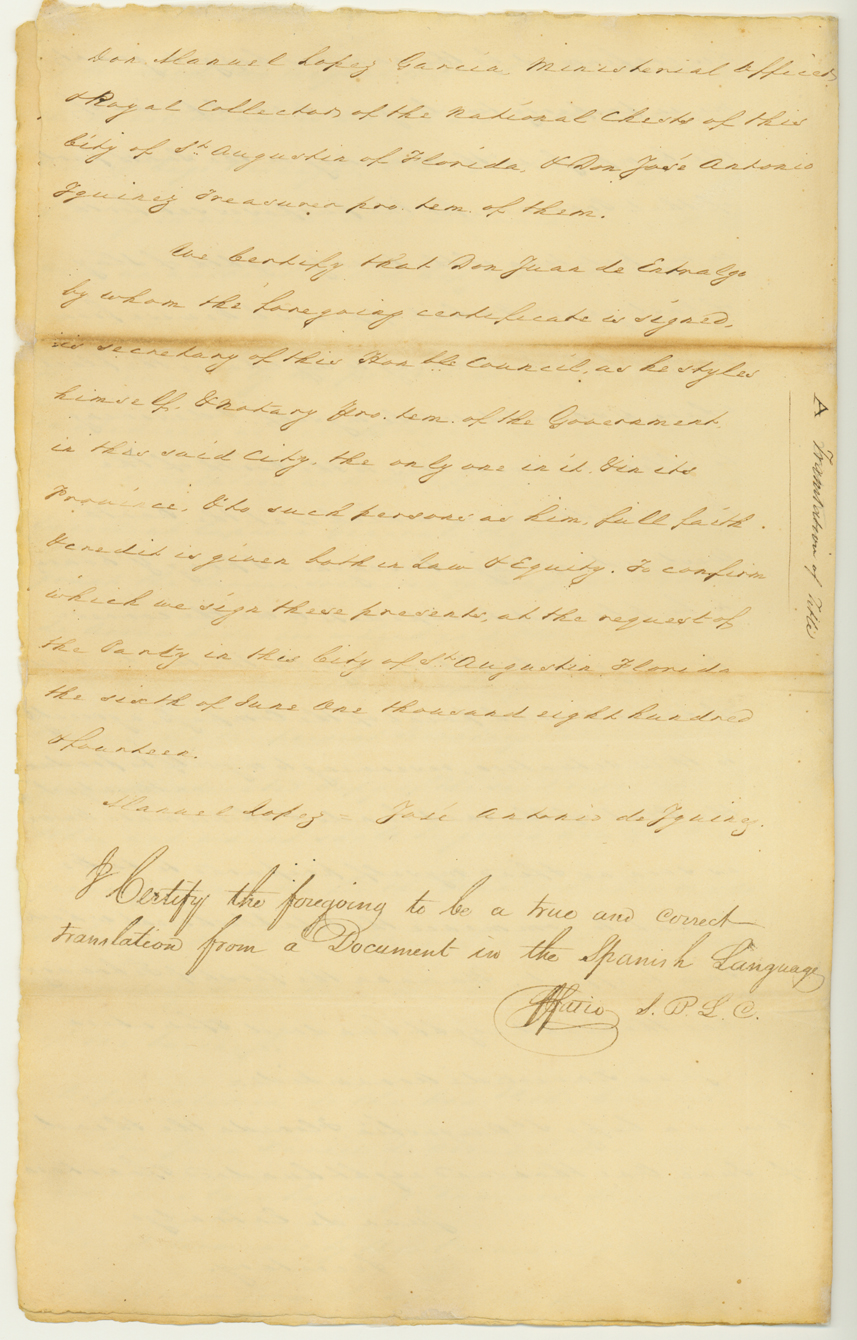 Don Manuel Lopez Garcia, Ministerial Officer
& Royal Collector of the National Chests of this
City of St. Augustin of Florida, & Don José Antonio
Yguinez Treasurer pro. tem. of them.
We Certify that Don Juan de Entralgo
by whom the foregoing certificate is signed,
is secretary of this Honble Council, as he styles
himself, & Notary Pro. tem. of the Government
in this said City, the only one in it & in its
Province, & to such persons as him, full faith
& credit is given both in Law & Equity. To confirm
which we sign these presents, at the request of
the Party in this City of St. Augustin Florida
the sixth of June One thousand eight hundred
& fourteen.
Manuel Lopez = José Antonio de Yguinez.
I Certify the foregoing to be a true and correct
translation from a Document in the Spanish Language
S. P. L. C.
A Translation of Title